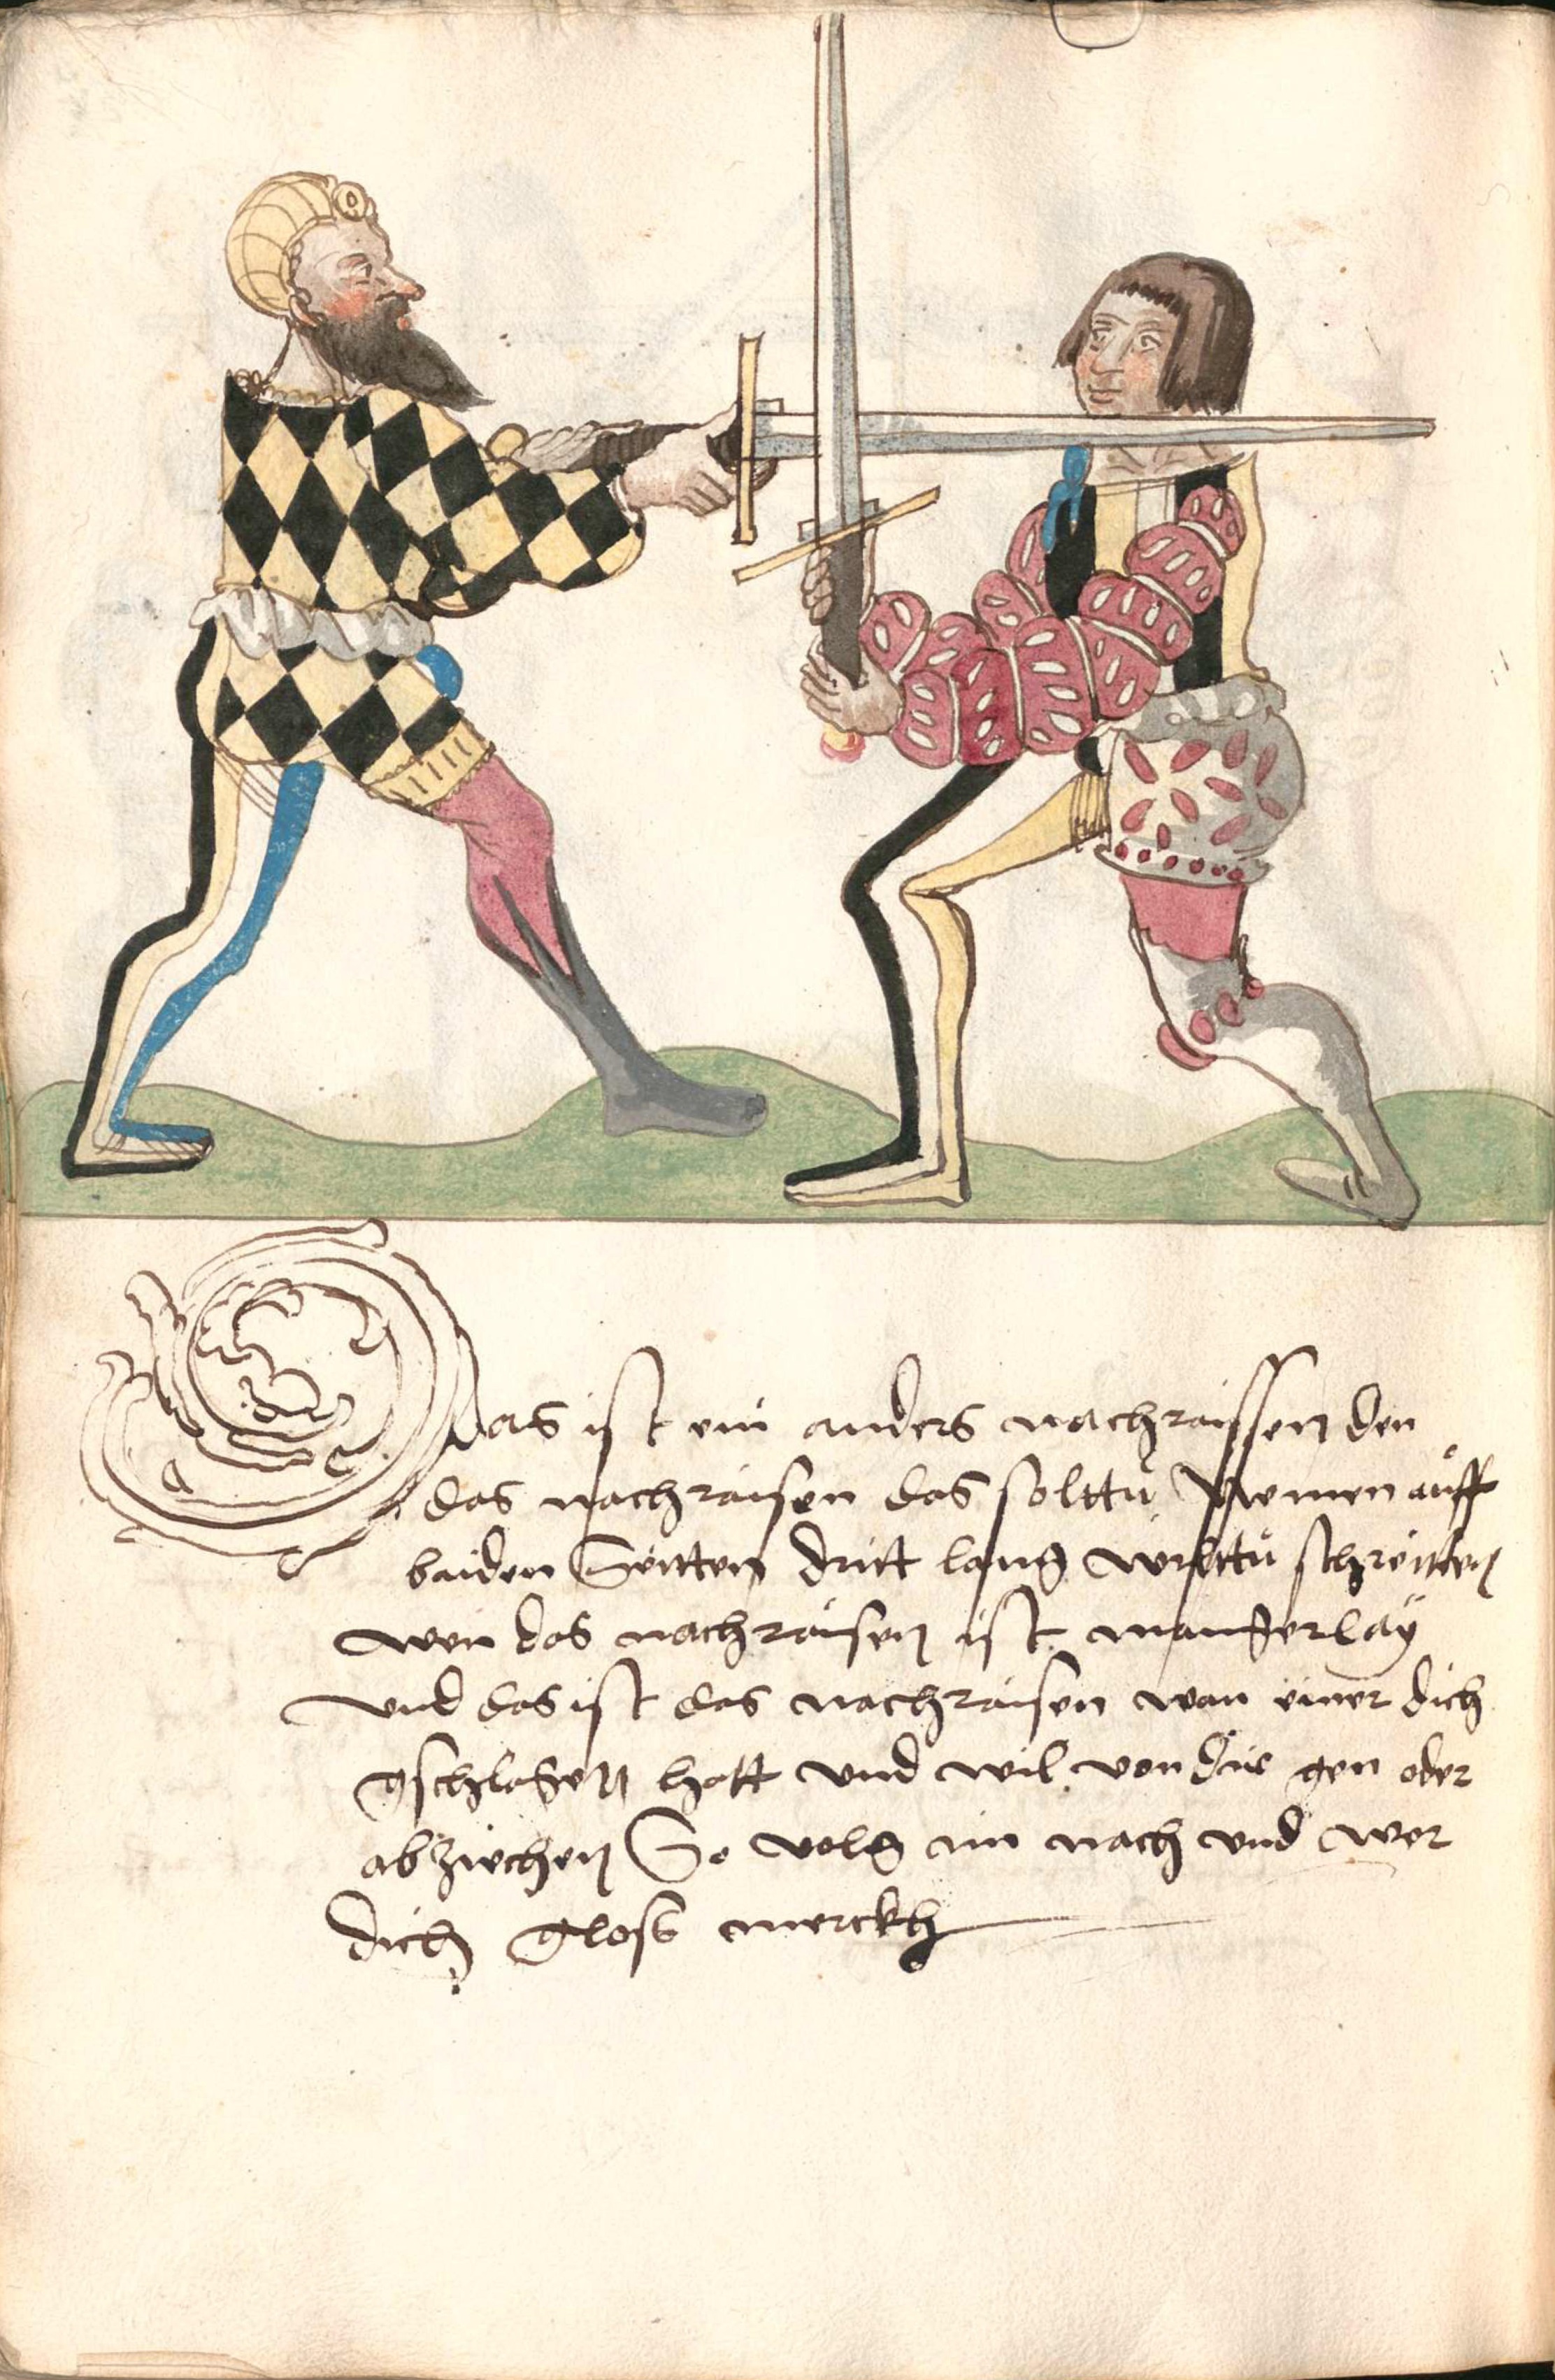 Das ist ein anders nachraissen den
das nachraisen das solttu nemen auff
baiden Seitten dritt lang wiltttu schreitten
wen das nachraisen ist mangerlay
vnd das ist das nachraisen wan einer dich
gschlagen hatt vnd wil von dir gen oder
abziechen So volg im nach vnd wer
dich glosß merckh